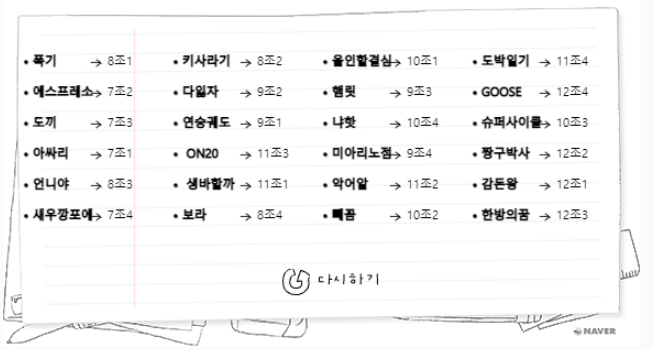 • 폭기 → 8조1 • 키사라기 → 8조2 • 올인할결심→ 10조1 • 도박일기 → 11조4
• 에스프레소→ 7조2 • 다잃자 → 9조2 • 햄릿 → 9조3 • GOOSE → 12조4
• 도끼 → 7조3 • 연승궤도 → 9조1 • 냐핫 → 10조4 • 슈퍼사이클→ 10조3
• 아싸리 → 7조1 • ON20 → 11조3 • 미아리노점→ 9조4 • 짱구박사 → 12조2
• 언니야 → 8조3 • 생바할까 → 11조1 • 악어알 → 11조2 • 감돈왕 → 12조1
• 새우깡포에→ 7조4 • 보라 → 8조4 • 빼꼼 → 10조2 • 한방의꿈 → 12조3
다시하기
NAVER